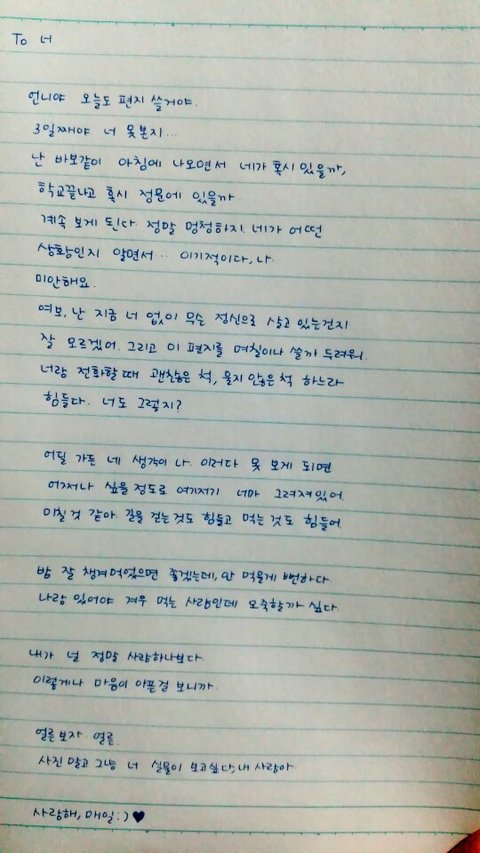 To 너
언니야 오늘도 편지 쓸거야.
3일째야 너 못본지...
난 바보같이 아침에 나오면서 네가 혹시 있을까,
학교끝나고 혹시 정문에 있을까
계속 보게 된다. 정말 멍청하지. 네가 어떤
상황인지 알면서... 이기적이다, 나.
미안해요.
여보, 난 지금 너 없이 무슨 정신으로 살고 있는건지
잘 모르겠어. 그리고 이 편지를 며칠이나 쓸까 두려워.
너랑 전화할 때 괜찮은 척, 울지 않은 척 하느라
힘들다. 너도 그렇지?
어딜 가든 네 생각이 나. 이러다 못 보게 되면
어쩌나 싶을 정도로 여기저기 너만 그려져있어
미칠 것 같아 길을 걷는것도 힘들고 먹는것도 힘들어
밥 잘 챙겨먹었으면 좋겠는데, 안 먹을게 뻔하다.
나랑 있어야 겨우 먹는 사람인데 오죽할까 싶다.
내가 널 정말 사랑하나보다.
이렇게나 마음이 아픈걸 보니까.
얼른보자. 얼른.
사진 말고 그냥 너 실물이 보고싶다, 내 사랑아.
사랑해, 매일 :) ♥